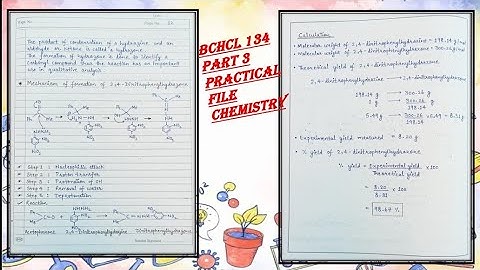 The product of condensation of a hydrazine and an
aldehyde or ketone is called a hydrazone.
The formation of hydrazone is done to identify a
carbonyl compound thus the reaction has an important
use in qualitative analysis
Mechanism of formation of 2,4-Dinitrophenylhydrazone
Step 1: Nucleophilic attack
Step 2: Proton transfer
Step 3: Protonation of OH
Step 4: Removal of water
Step 5: Deprotonation
Reaction
Acetophenone 2,4-Dinitrophenylhydrazine Dinitrophenylhydrazone
BCHCL 134
PART 3
PRACTICAL
FILE
CHEMISTRY
Calculation
Molecular weight of 2,4-dinitrophenylhydrazine = 198.14 g/mol
Molecular weight of 2,4-dinitrophenylhydrazone = 300.26 g/mol
Theoretical yield of 2,4-dinitrophenylhydrazone
2,4-dinitrophenylhydrazine → 2,4-dinitrophenylhydrazone
198.14 g → 300.26 g
1 g → 300.26
198.14
5.49 g → 300.26 x 5.49 = 8.31 g
198.14
Experimental yield measured = 8.20 g
% yield of 2,4-dinitrophenylhydrazone
% yield = Experimental yield x 100
Theoretical yield
= 8.20 x 100
8.31
= 98.67 %